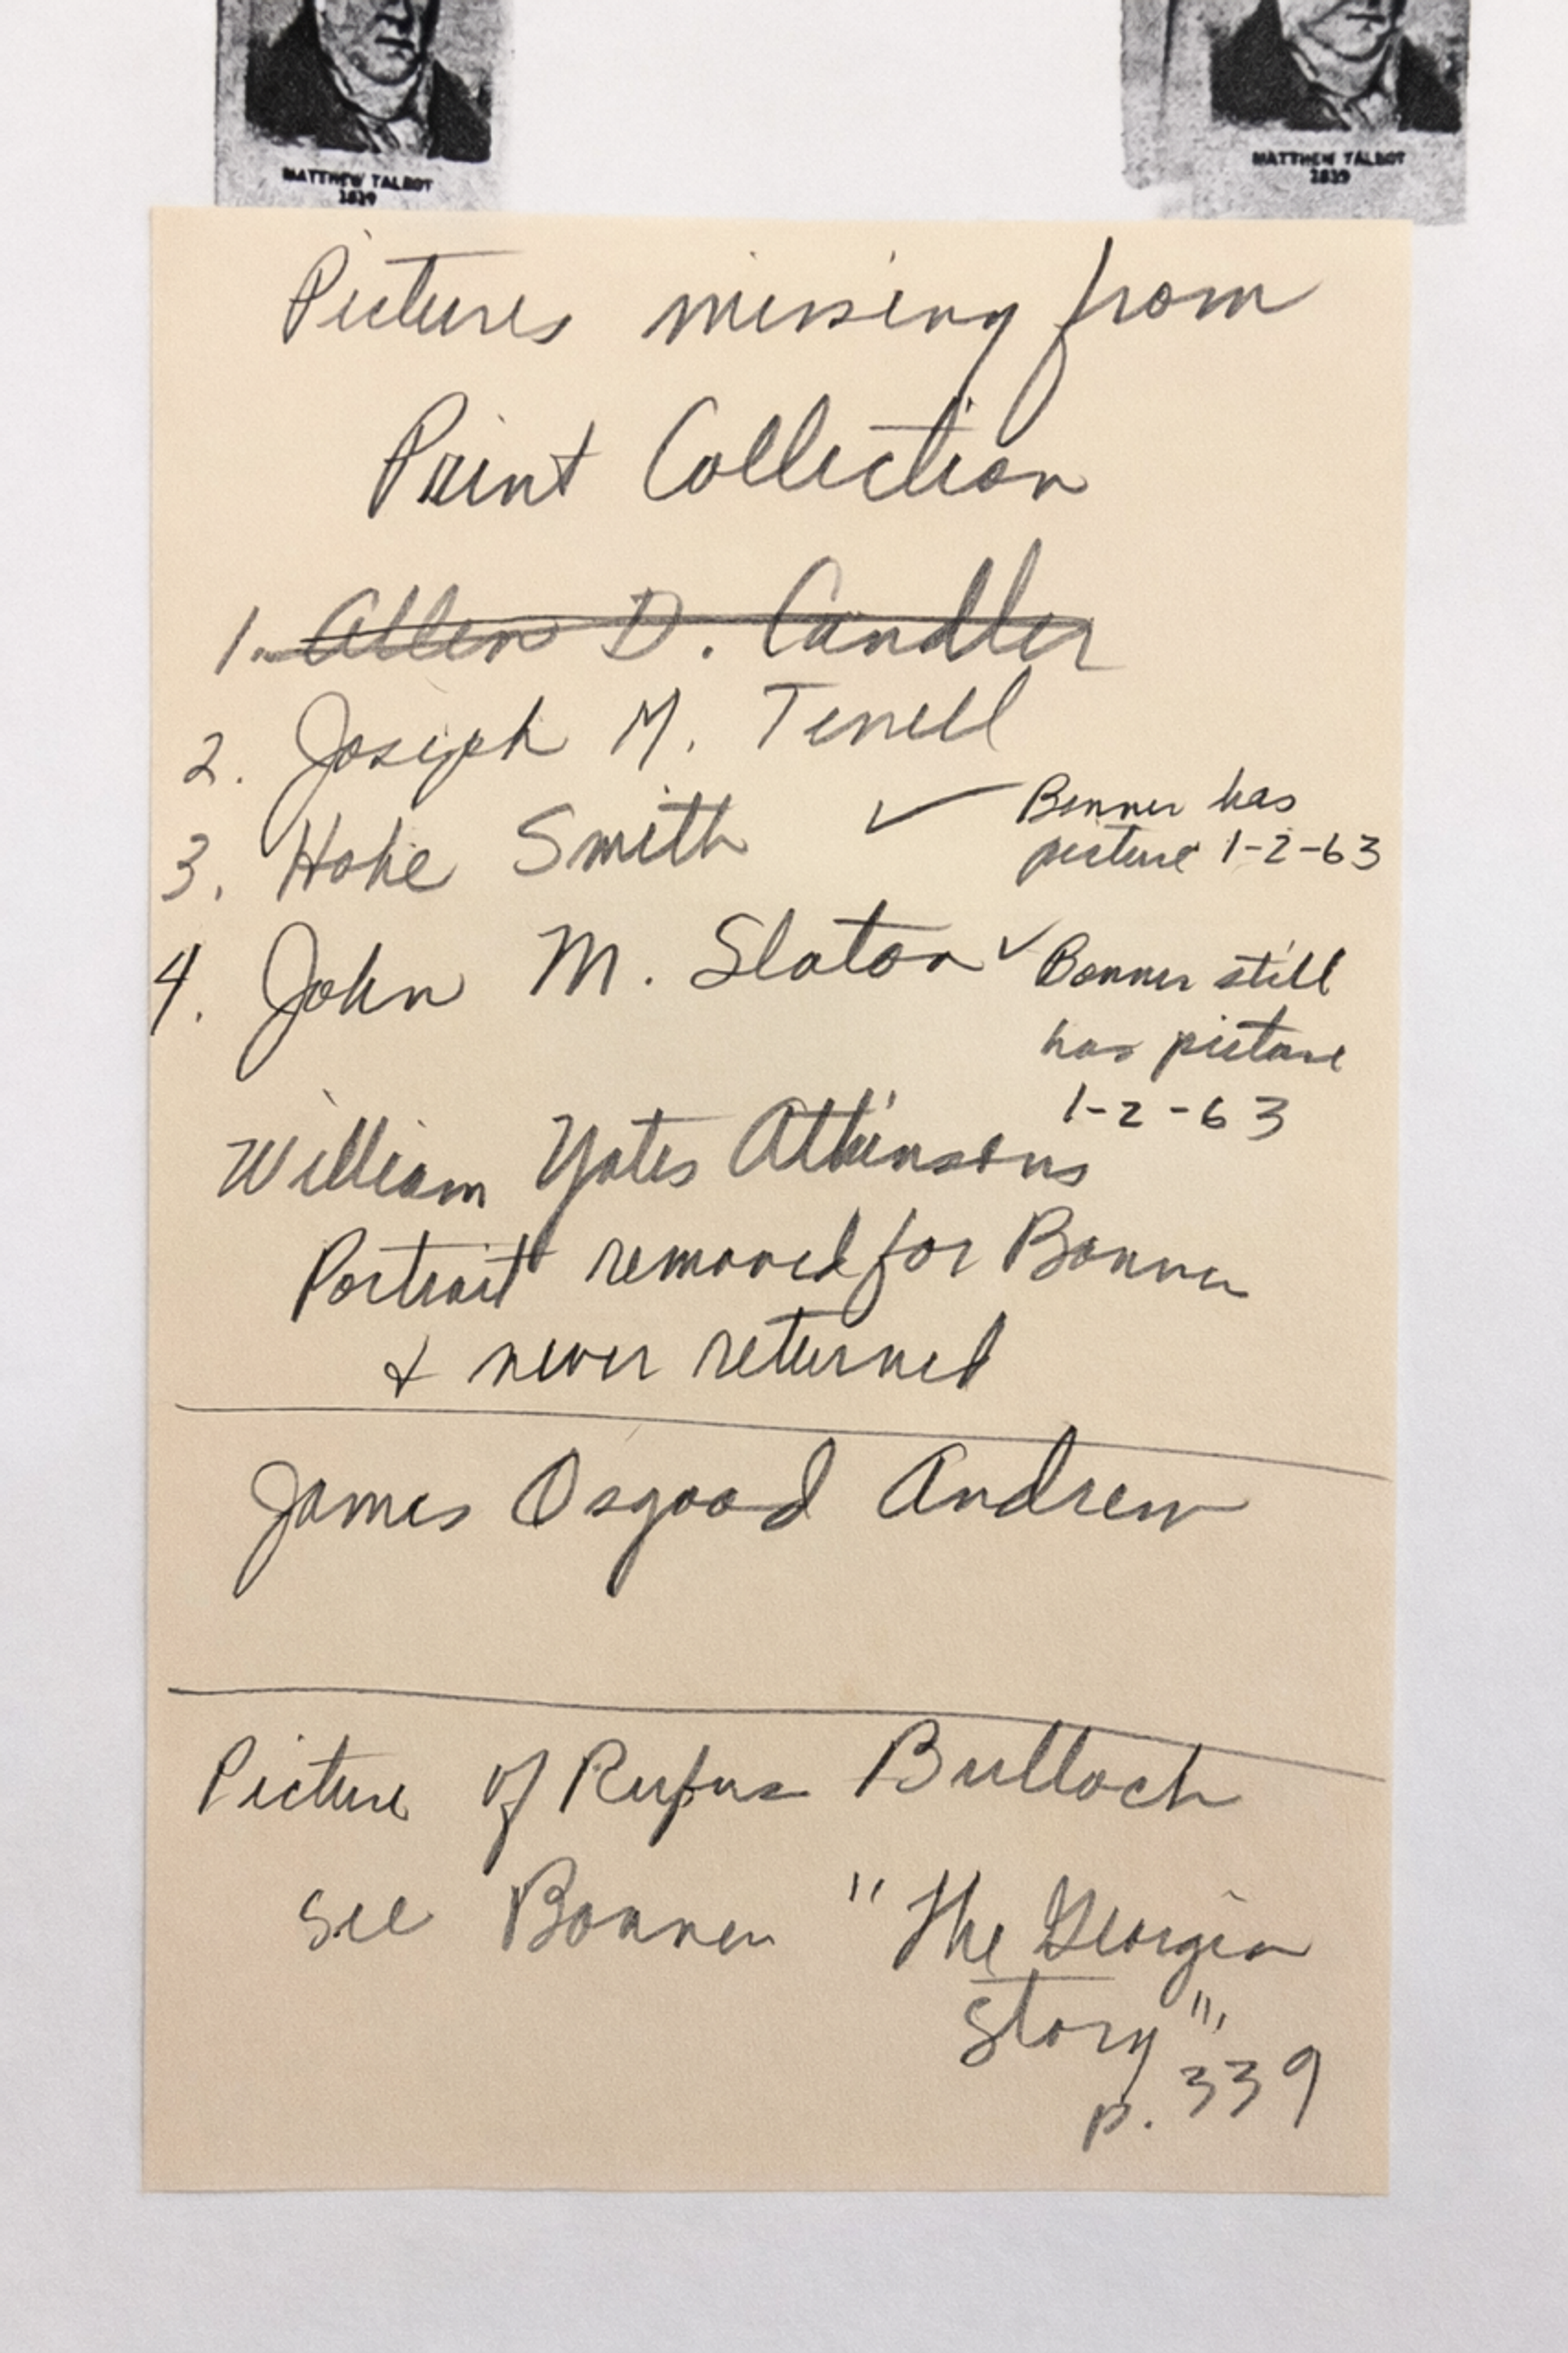 MATTHEW TALBOT
1819
MATTHEW TALBOT
1819
Pictures missing from
Print Collection
1. Allen D. Candler
2. Joseph M. Terrell
3. Hoke Smith ✓ Bonner has
picture 1-2-63
4. John M. Slaton ✓ Bonner still
has picture
1-2-63
William Yates Atkinsons
Portrait removed for Bonner
& never returned
James Osgood Andrew
Picture of Rufus Bulloch
see Bonner "The Georgia
Story",
p. 339